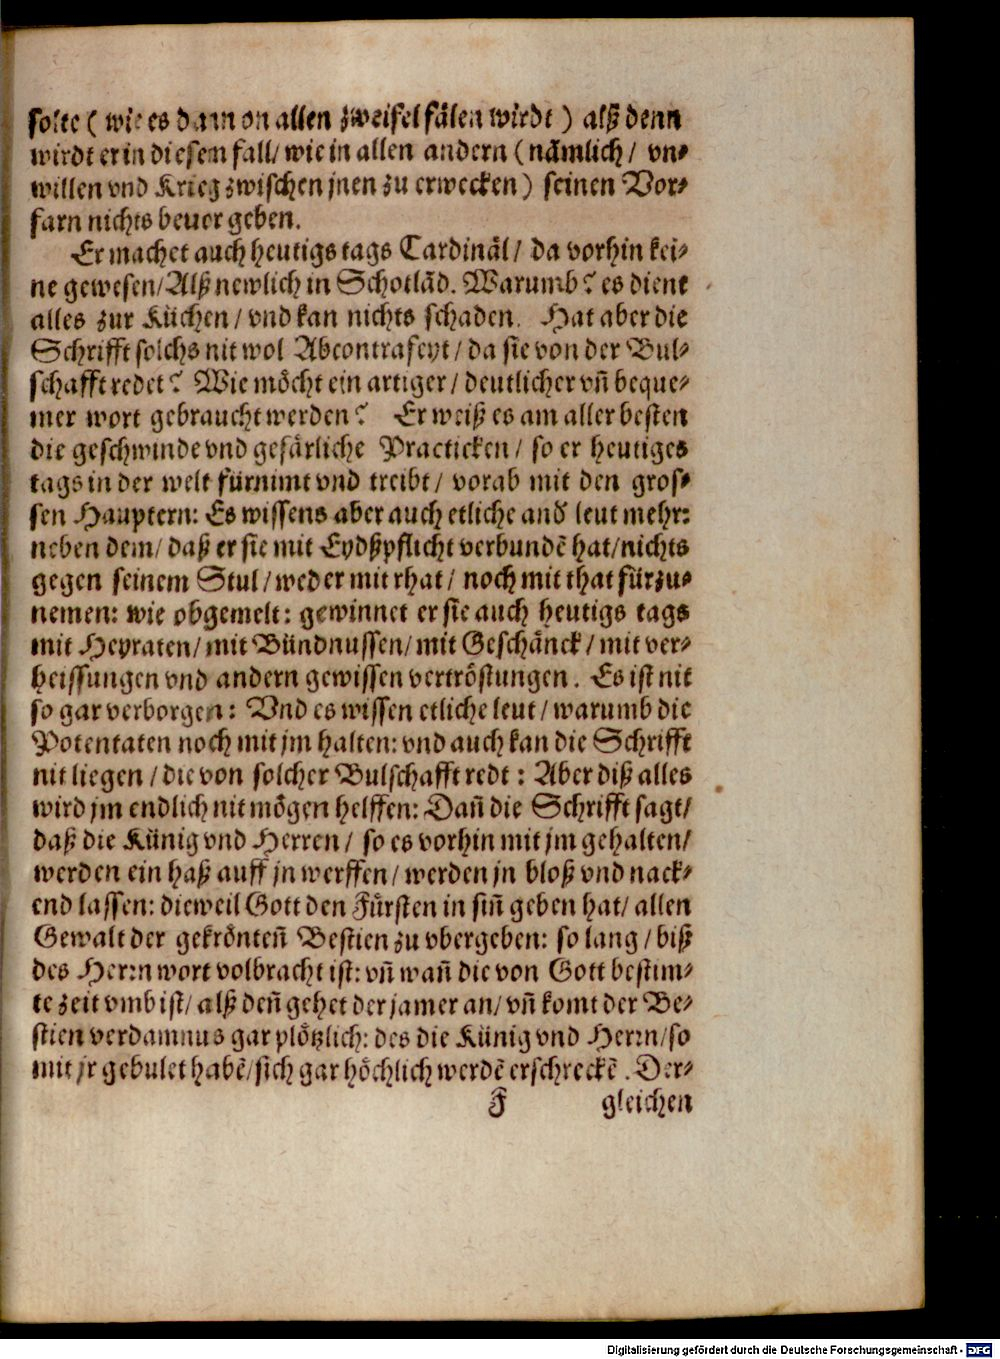 solte ( wie es dann on allen zweifel fälen wirdt ) alß denn
wirdt er in diesem fall/ wie in allen andern ( nämlich/ vn⸗
willen vnd Krieg zwischen jnen zu erwecken) seinen Vor⸗
farn nichts beuor geben.
Er machet auch heutigs tags Cardinäl/ da vorhin kei⸗
ne gewesen/ Alß newlich in Schotlãd. Warumb? es dient
alles zur Küchen/ vnd kan nichts schaden. Hat aber die
Schrifft solchs nit wol Abcontrafeyt/ da sie von der Bul⸗
schafft redet? Wie möcht ein artiger/ deutlicher vñ beque⸗
mer wort gebraucht werden? Er weiß es am aller besten
die geschwinde vnd gefärliche Practicken/ so er heutiges
tags in der welt fürnimt vnd treibt/ vorab mit den gros⸗
sen Hauptern: Es wissens aber auch etliche and' leut mehr:
neben dem/ daß er sie mit Eydßpflicht verbundẽ hat/ nichts
gegen seinem Stul/ weder mit rhat/ noch mit that fürzu⸗
nemen: wie obgemelt: gewinnet er sie auch heutigs tags
mit Heyraten/ mit Bündnussen/ mit Geschänck/ mit ver⸗
heissungen vnd andern gewissen vertröstungen. Es ist nit
so gar verborgen: Vnd es wissen etliche leut/ warumb die
Potentaten noch mit jm halten: vnd auch kan die Schrifft
nit liegen/ die von solcher Bulschafft redt: Aber diß alles
wird jm endlich nit mögen helffen: Dañ die Schrifft sagt/
daß die Künig vnd Herren/ so es vorhin mit jm gehalten/
werden ein haß auff jn werffen/ werden jn bloß vnd nack⸗
end lassen: dieweil Gott den Fürsten in siñ geben hat/ allen
Gewalt der gekrönteñ Bestien zu vbergeben: so lang/ biß
des Herrn wort volbracht ist: vñ wañ die von Gott bestim⸗
te zeit vmb ist/ alß deñ gehet der jamer an/ vñ komt der Be⸗
stien verdamnus gar plötzlich: des die Künig vnd Herrn/ so
mit jr gebulet habẽ/ sich gar höchlich werdẽ erschreckẽ. Der⸗
F gleichen
Digitalisierung gefördert durch die Deutsche Forschungsgemeinschaft - DFG